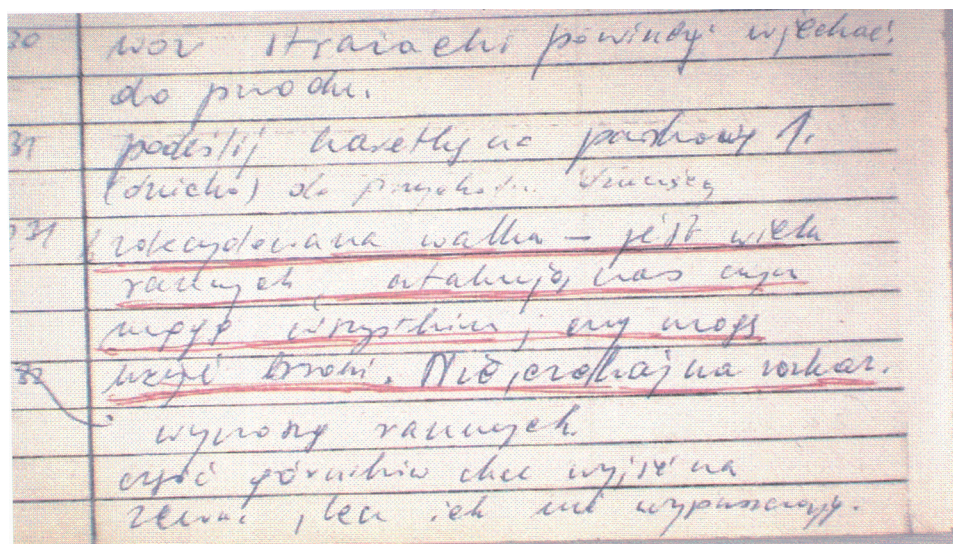 30 wóz strażacki powinny wjechać
do przodu.
31 podeślij karetkę na parkowy 1.
(cicho) do przychodni
31 zdecydowana walka – jest wielu
rannych, atakują nas czym
mogą wszystkim, czy mogę
użyć broni. Nie, czekaj na rozkaz.
32
wynoszą rannych.
część górników chce wyjść na
zewn, lecz ich nie wypuszczają.